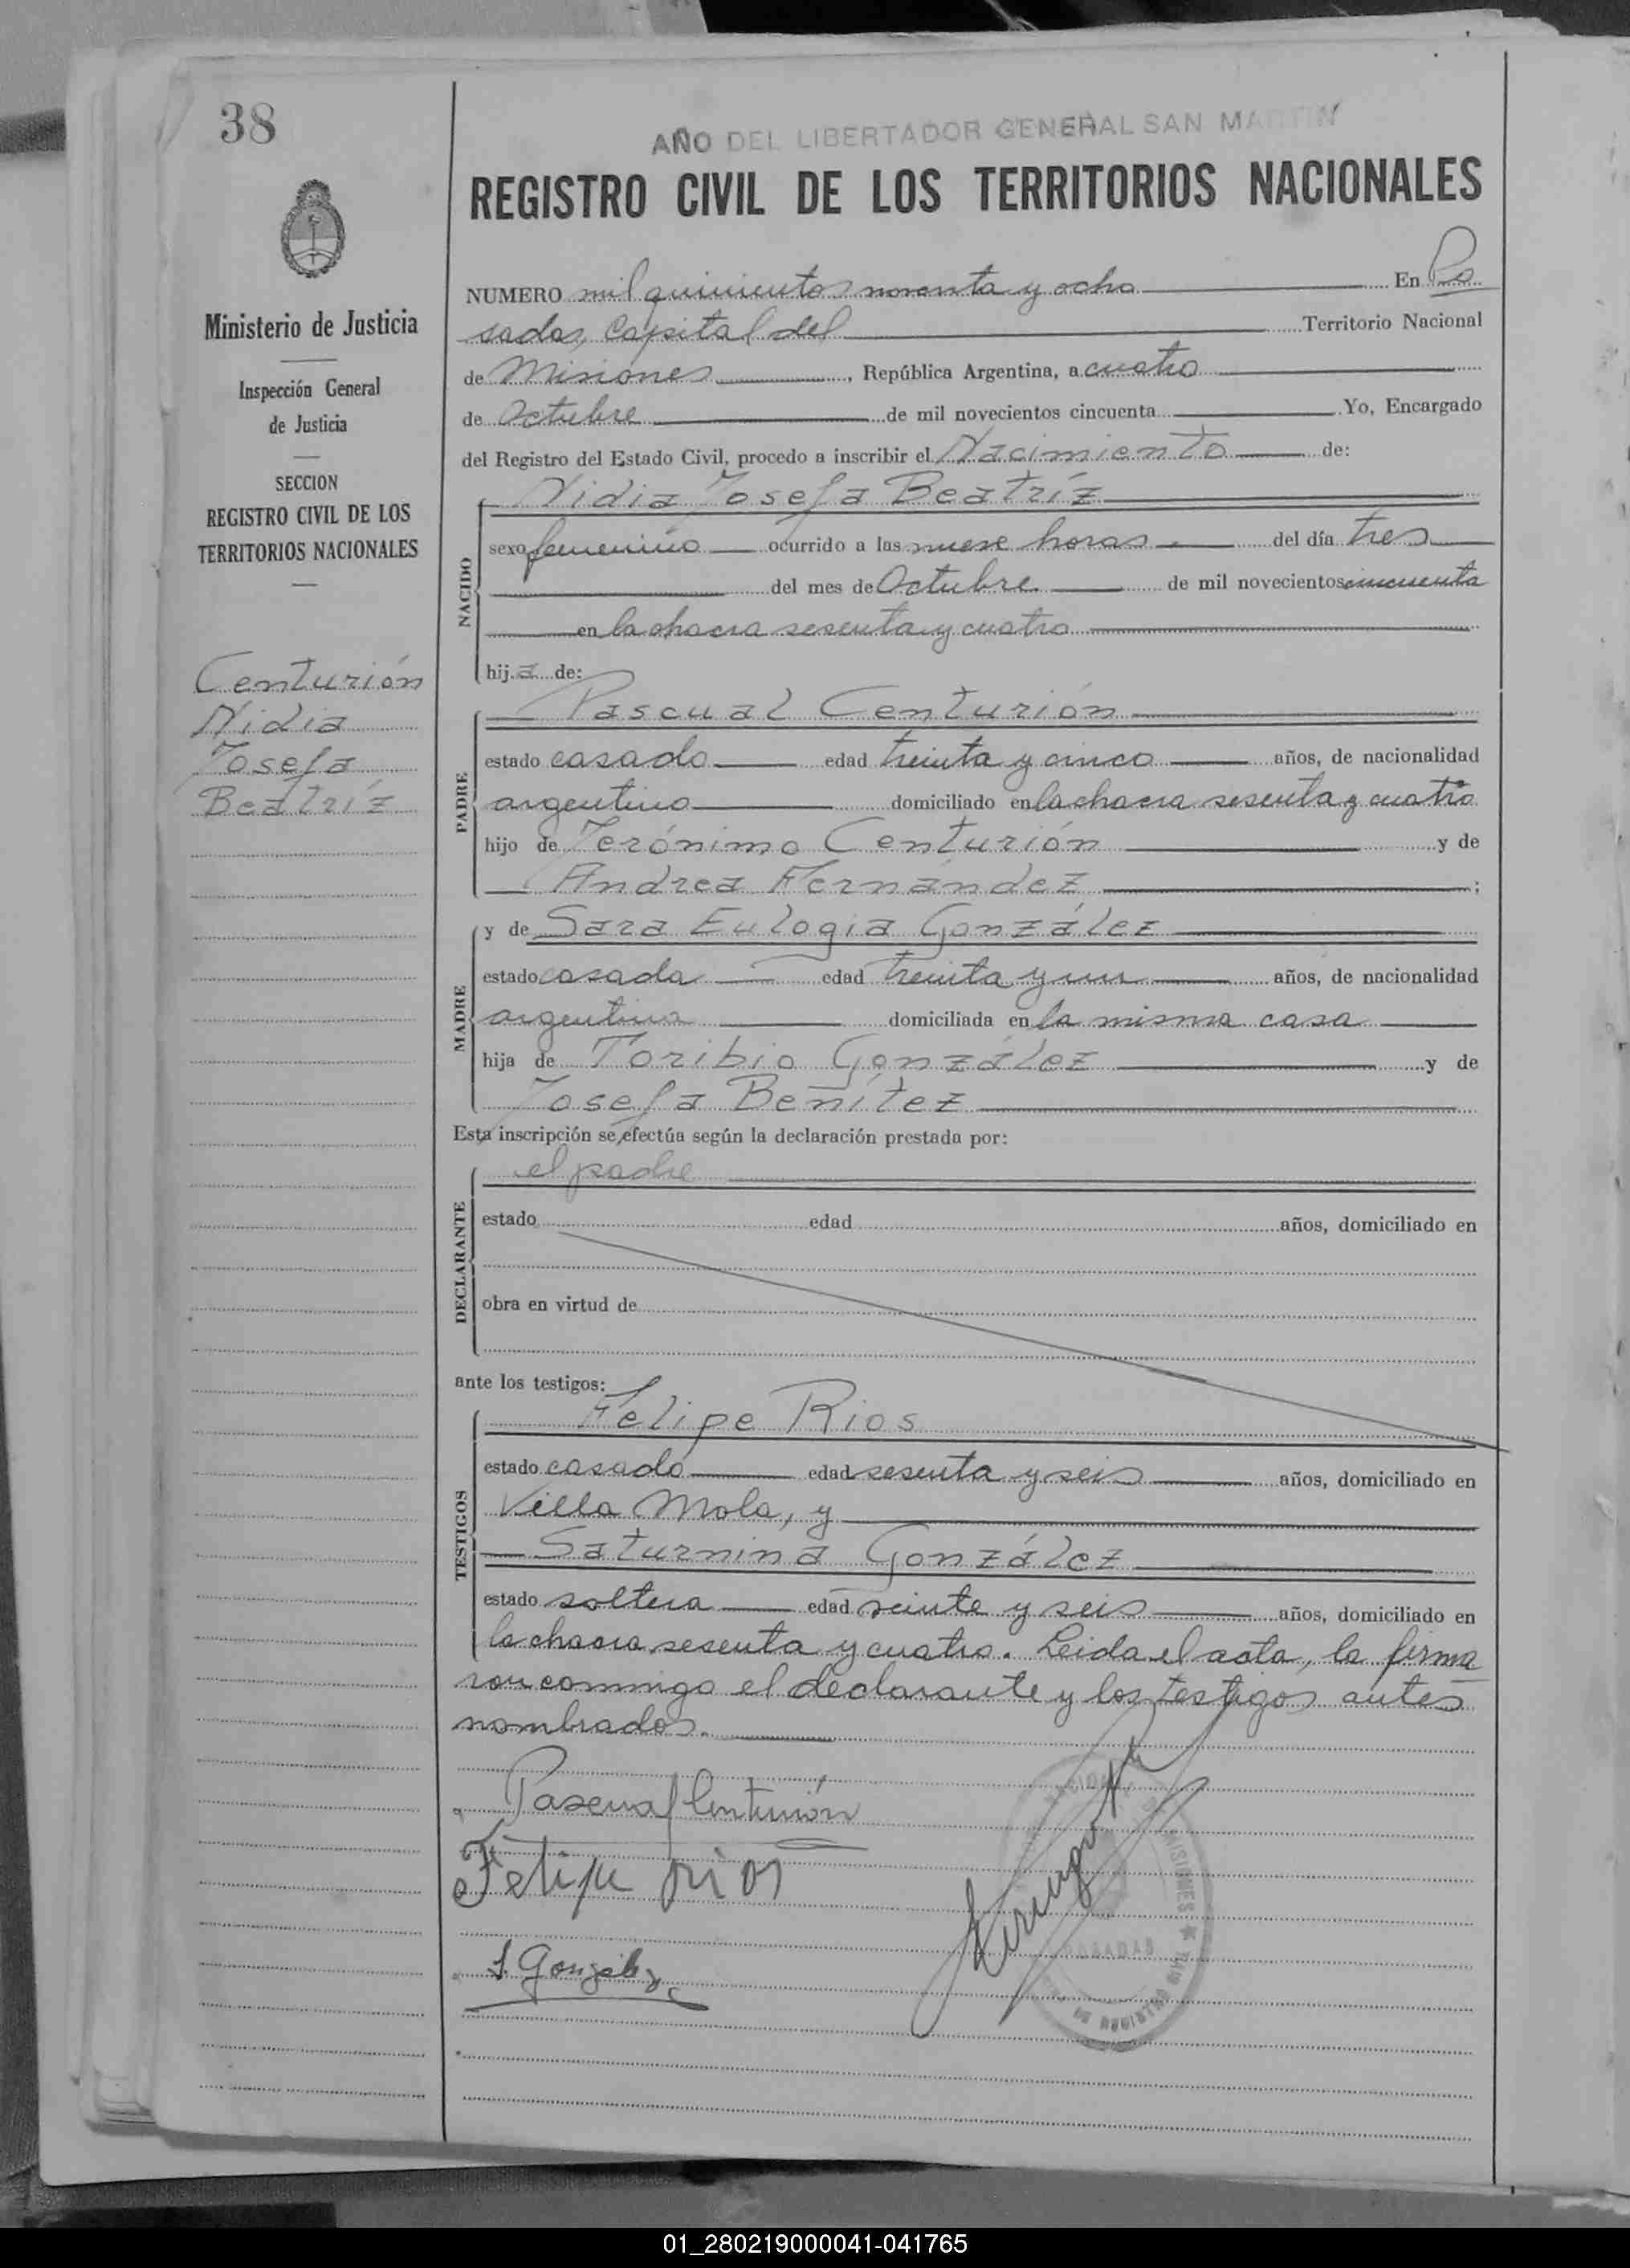 38
AÑO DEL LIBERTADOR GENERAL SAN MARTIN
REGISTRO CIVIL DE LOS TERRITORIOS NACIONALES
Ministerio de Justicia
Inspección General
de Justicia
SECCION
REGISTRO CIVIL DE LOS
TERRITORIOS NACIONALES
Centurión
Nidia
Josefa
Beatríz
NUMERO mil quinientos noventa y ocho En Po
sadas, Capital del Territorio Nacional
de Misiones, República Argentina, a cuatro
de Octubre de mil novecientos cincuenta Yo, Encargado
del Registro del Estado Civil, procedo a inscribir el Nacimiento de:
NACIDO
Nidia Josefa Beatríz
sexo femenino ocurrido a las nueve horas del día tres
del mes de Octubre de mil novecientos cincuenta
en la chacra sesenta y cuatro
hija de:
PADRE
Pascual Centurión
estado casado edad treinta y cinco años, de nacionalidad
argentino domiciliado en la chacra sesenta y cuatro
hijo de Jerónimo Centurión y de
Andrea Fernández;
MADRE
y de Sara Eulogia González
estado casada edad treinta y un años, de nacionalidad
argentina domiciliada en la misma casa
hija de Toribio González y de
Josefa Benítez
Esta inscripción se efectúa según la declaración prestada por:
DECLARANTE
el padre
estado edad años, domiciliado en
obra en virtud de
ante los testigos:
TESTIGOS
Felipe Rios
estado casado edad sesenta y seis años, domiciliado en
Villa Mola, y
Saturnina González
estado soltera edad veinte y seis años, domiciliado en
la chacra sesenta y cuatro. Leida el acta, la firma
ron conmigo el declarante y los testigos antes
nombrados.
Pascual Centurión
Felipe rios
S. González
MISIONES
POSADAS
DE REGISTRO
01_280219000041-041765